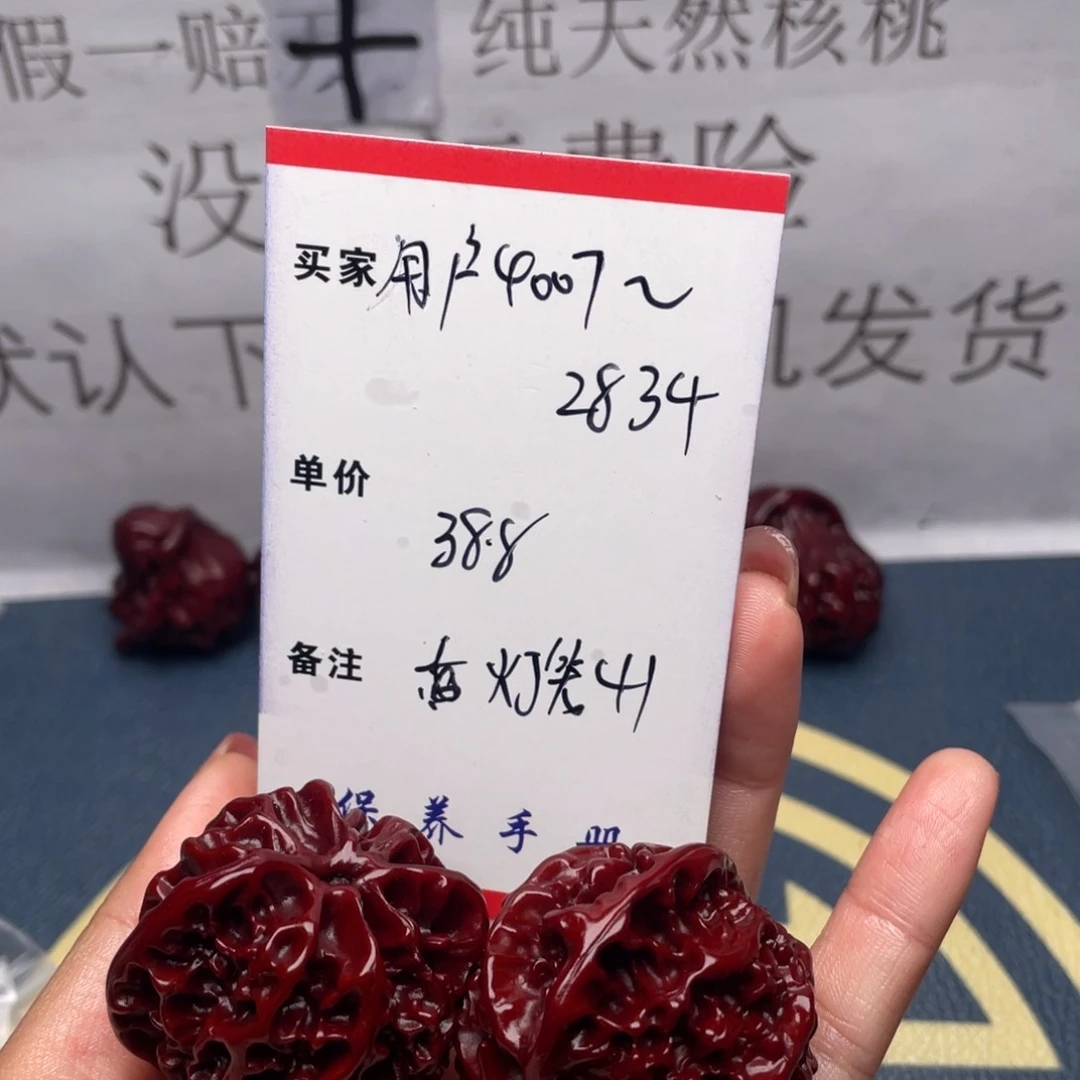 假一赔十 纯天然核桃
没 费险
默认下 机发货
买家 用户4007～
2834
单价
38.8
备注 灯笼41
保养手册